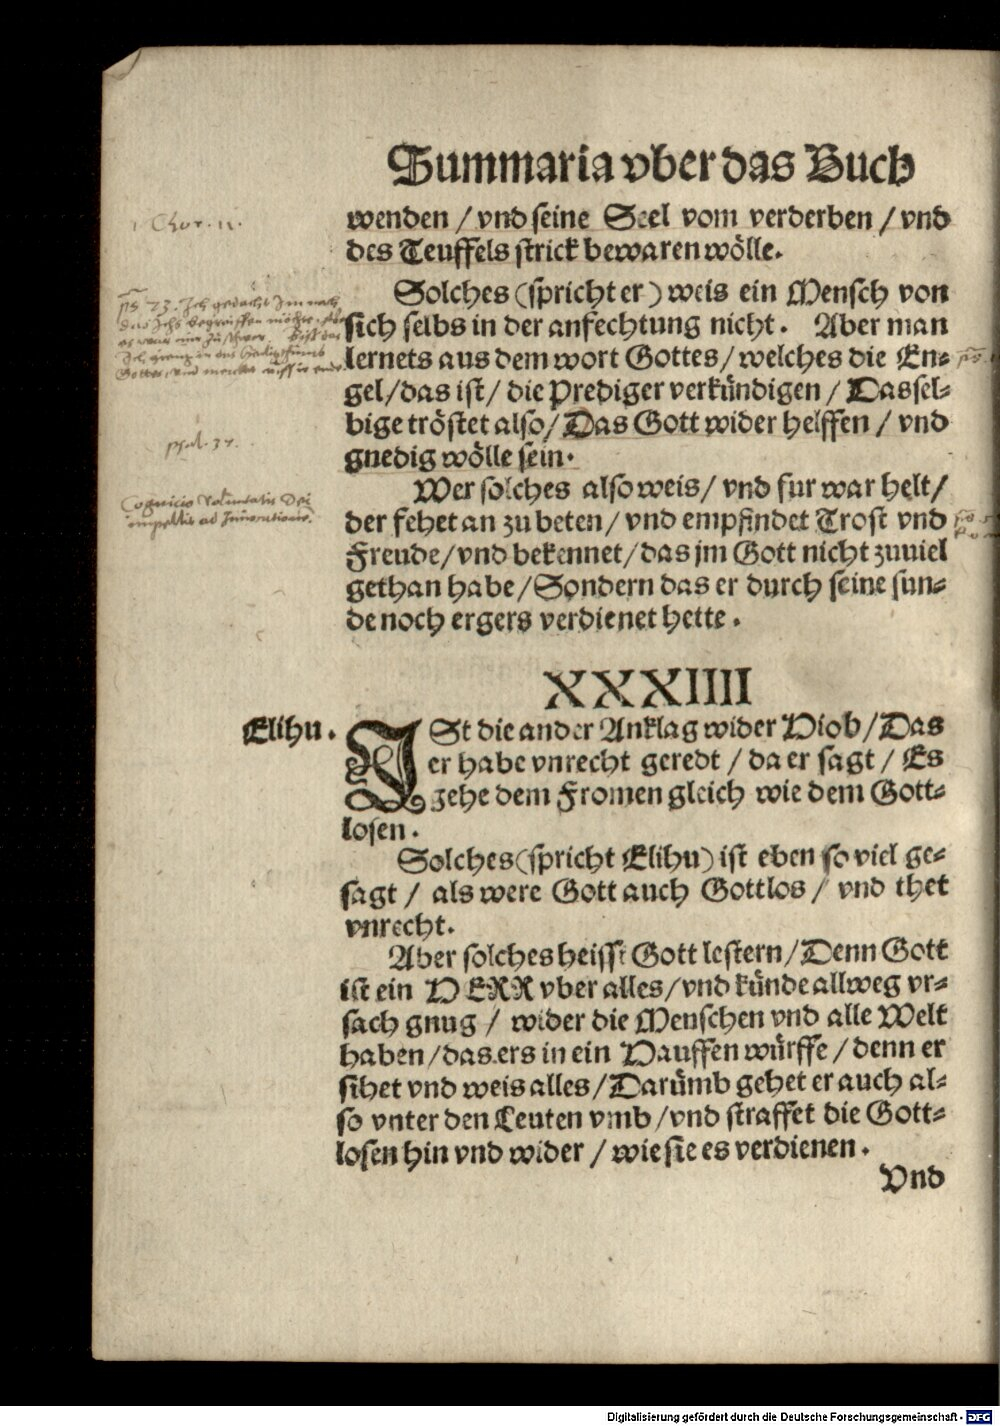 Summaria vber das Buch
wenden / vnd seine Seel vom verderben / vnd
des Teuffels strick bewaren wölle.
Solches (spricht er) weis ein Mensch von
sich selbs in der anfechtung nicht. Aber man
lernets aus dem wort Gottes / welches die En-
gel / das ist / die Prediger verkündigen / Dassel-
bige tröstet also / Das Gott wider helffen / vnd
gnedig wölle sein.
Wer solches also weis / vnd fur war helt /
der fehet an zu beten / vnd empfindet Trost vnd
Freude / vnd bekennet / das jm Gott nicht zuuiel
gethan habe / Sondern das er durch seine sun-
de noch ergers verdienet hette.
XXXIIII
Elihu.
ISt die ander Anklag wider Hiob / Das
er habe vnrecht geredt / da er sagt / Es
gehe dem Fromen gleich wie dem Gott-
losen.
Solches (spricht Elihu) ist eben so viel ge-
sagt / als were Gott auch Gottlos / vnd thet
vnrecht.
Aber solches heisst Gott lestern / Denn Gott
ist ein HERR vber alles / vnd künde allweg vr-
sach gnug / wider die Menschen vnd alle Welt
haben / das ers in ein Hauffen würffe / denn er
sihet vnd weis alles / Darümb gehet er auch al-
so vnter den Leuten vmb / vnd straffet die Gott-
losen hin vnd wider / wie sie es verdienen.
Vnd
psal. 37.
Cognicio voluntatis Dei
Digitalisierung gefördert durch die Deutsche Forschungsgemeinschaft - DFG